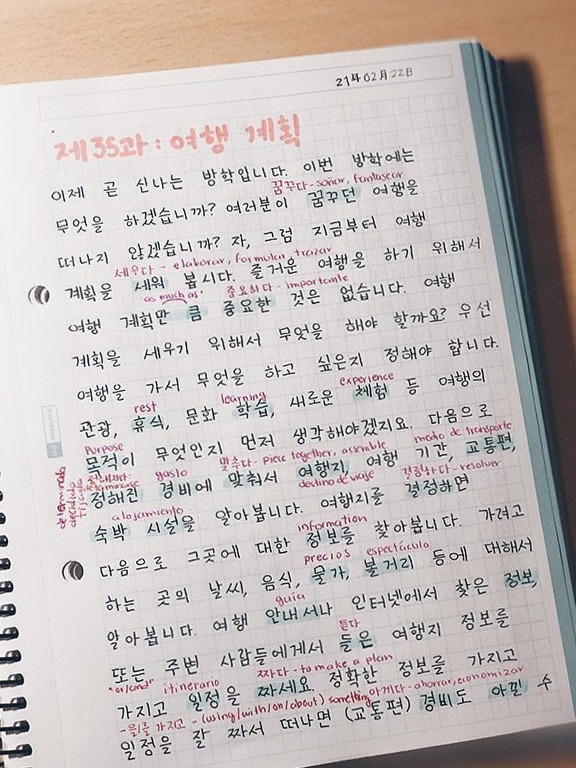 21年 02月 22日
제35과: 여행 계획
이제 곧 신나는 방학입니다. 이번 방학에는
꿈꾸다 - soñar, fantasear
무엇을 하겠습니까? 여러분이 꿈꾸던 여행을
떠나지 않겠습니까? 자, 그럼 지금부터 여행
세우다 - elaborar, formular, trazar
계획을 세워 봅시다. 즐거운 여행을 하기 위해서
"as much as" 중요하다 - importante
여행 계획만 큼 중요한 것은 없습니다. 여행
계획을 세우기 위해서 무엇을 해야 할까요? 우선
여행을 가서 무엇을 하고 싶은지 정해야 합니다.
rest learning experience
관광, 휴식, 문화 학습, 새로운 체험 등 여행의
purpose
목적이 무엇인지 먼저 생각해야겠지요. 다음으로
정해지다 gasto 맞추다 - piece together, assemble medio de transporte
determinado
정해진 경비에 맞춰서 여행지, 여행 기간, 교통편,
alojamiento destino de viaje 결정하다 - resolver
숙박 시설을 알아봅니다. 여행지를 결정하면
information
다음으로 그곳에 대한 정보를 찾아봅니다. 가려고
precios espectáculo
하는 곳의 날씨, 음식, 물가, 볼거리 등에 대해서
guía
알아 봅니다. 여행 안내서나 인터넷에서 찾은 정보,
듣다
또는 주변 사람들에게서 들은 여행지 정보를
"or/and" itinerario 짜다 - to make a plan
가지고 일정을 짜세요. 정확한 정보를 가지고
-을/를 가지고 - (using/with/on/about) something 아끼다 - ahorrar, economizar
일정을 잘 짜서 떠나면 (교통편) 경비도 아낄 수